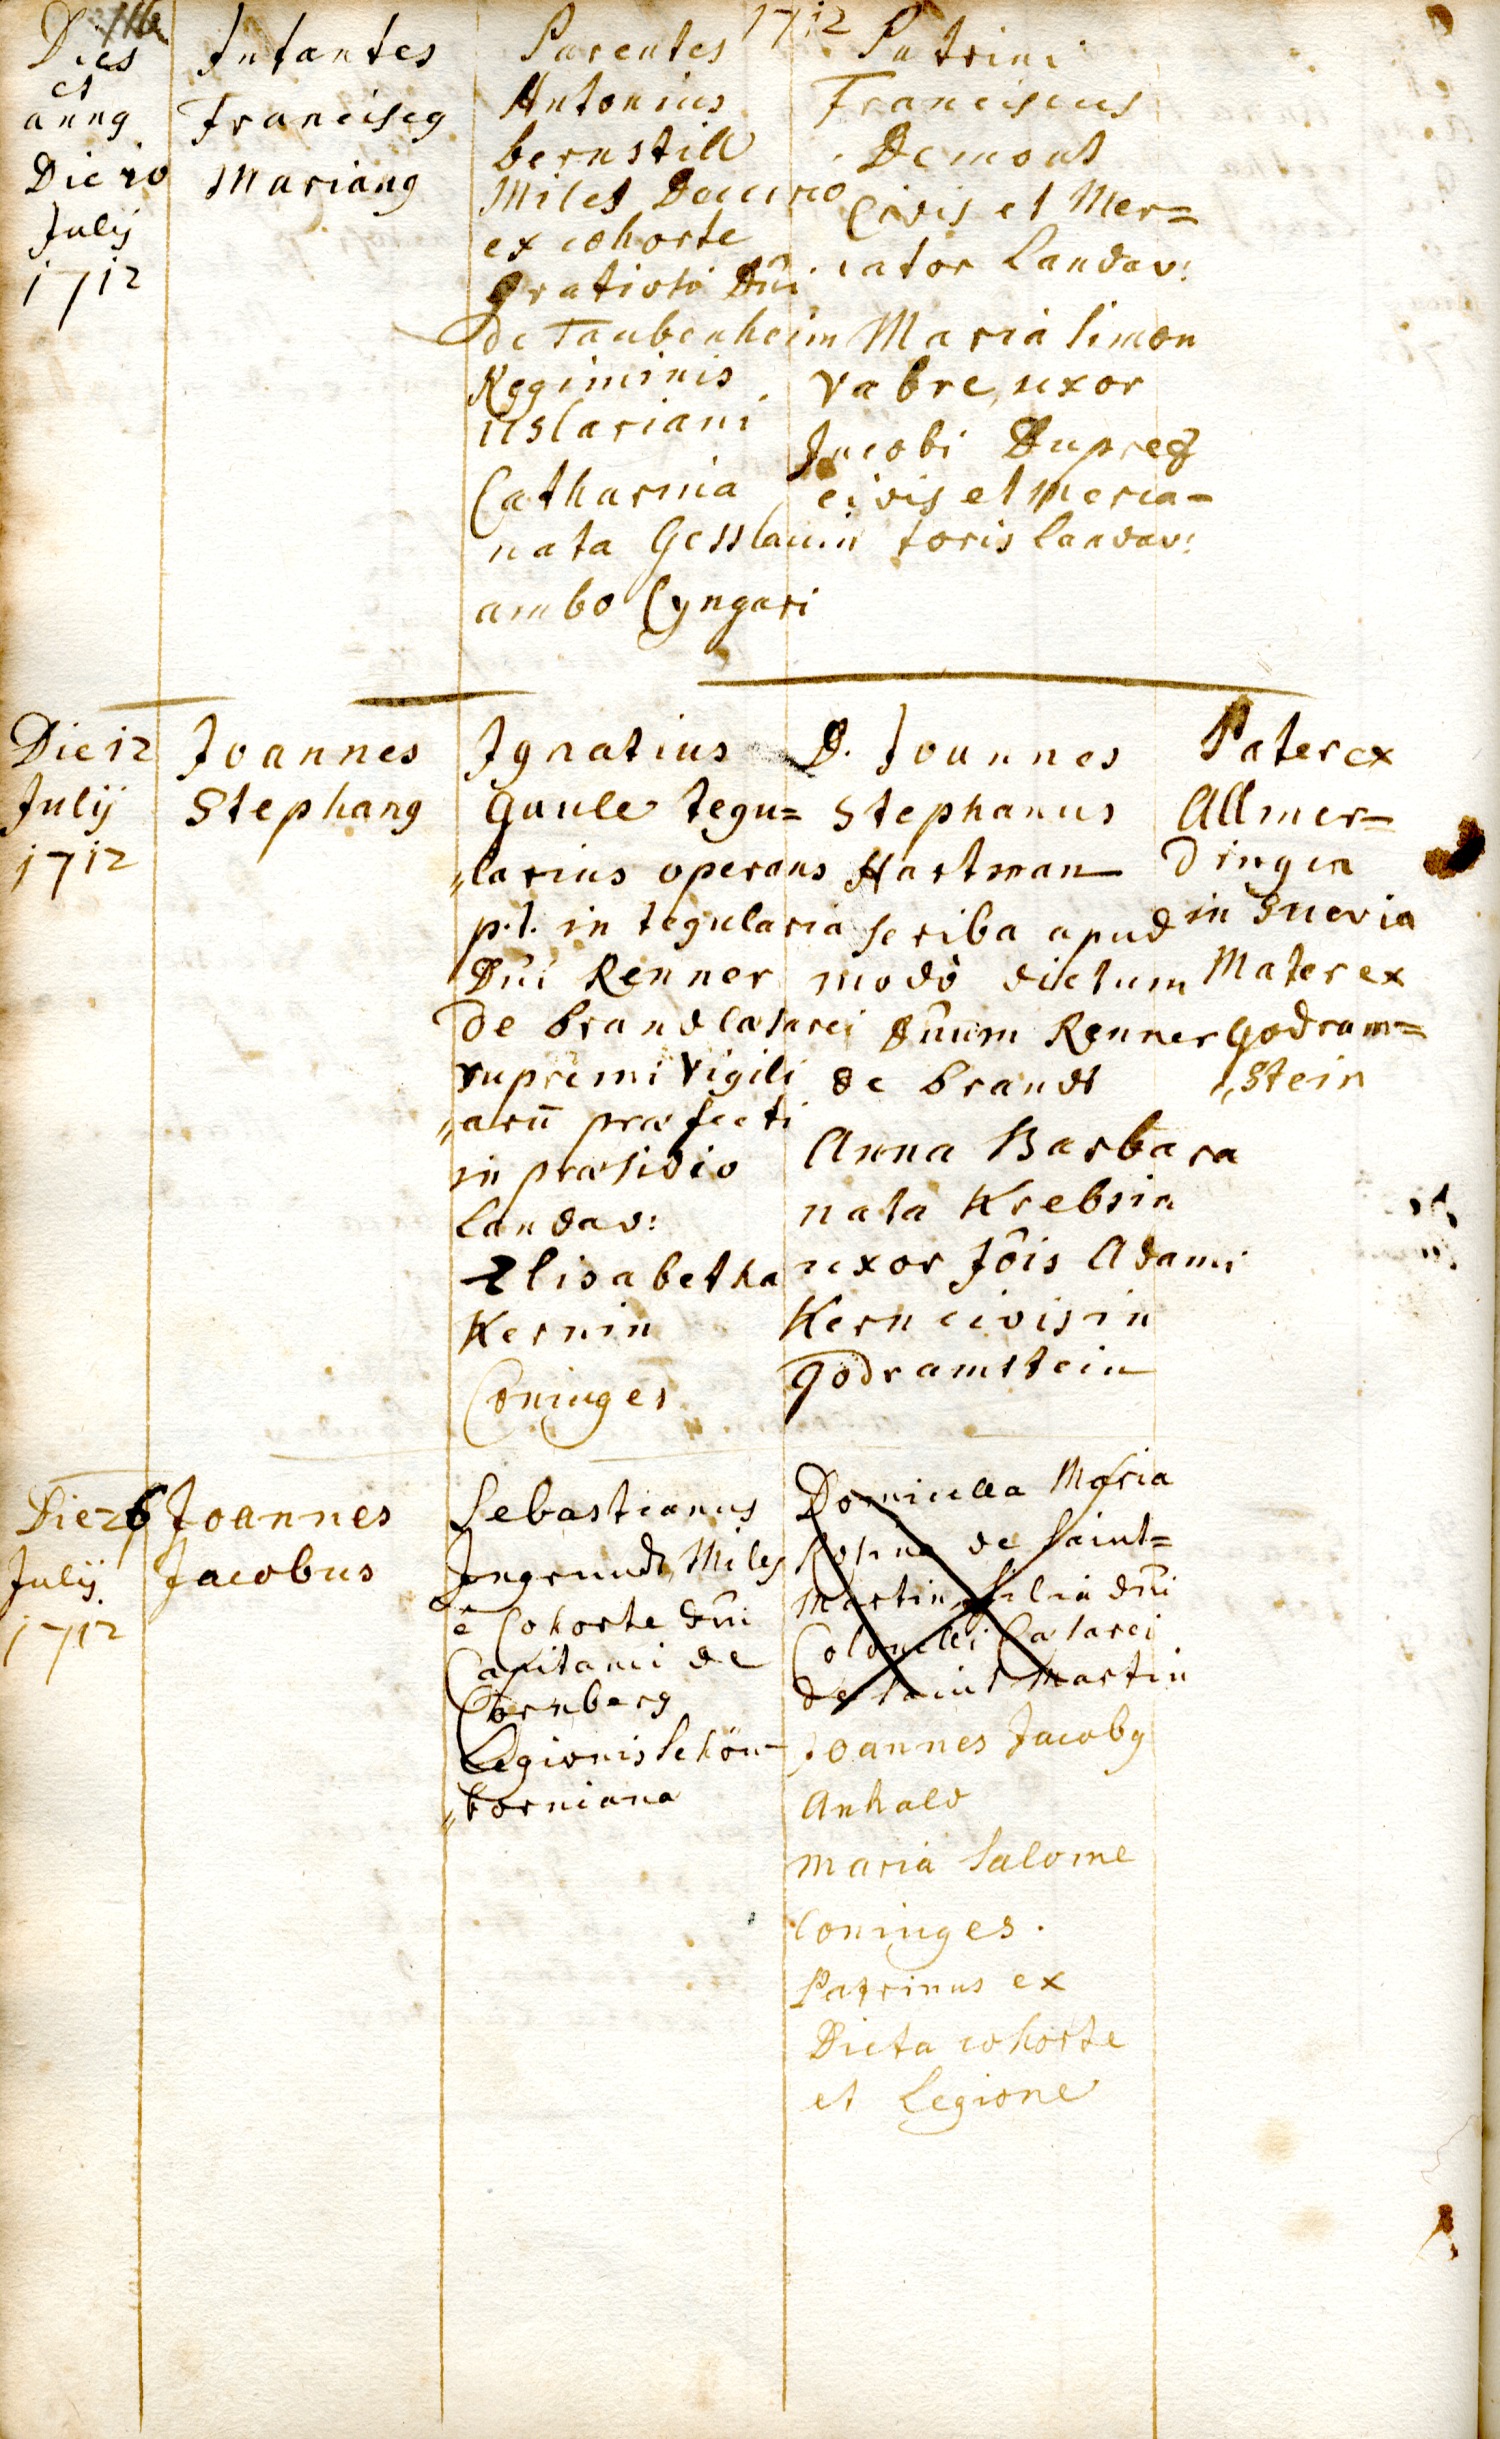 1712
Dies
et
annq
Infantes
Parentes
Patrini
Die 10
Julij
1712
Franciscq
Marianq
Antonius
bernstill
Miles Decurio
ex cohorte
gratiosi Dni
De Taubenheim
Regiminis
Uslariani
Catharina
nata Gesslauin
ambo Cyngari
Franciscus
Demont
Civis et Mer=
cator Landav:
Maria Simon
Vabre, uxor
Jacobi Duprez
civis et merca=
toris landav:
Die 12
Julij
1712
Joannes
Stephanq
Ignatius
Gaule tegu=
"larius operans
p.t. in tegularia
Dni Renner
De brand Cæsarei
supremi Vigili
"arū præfecti
in præsidio
landav:
Elisabetha
Kernin
Coniuges
D. Joannes
Stephanus
Hartman
scriba apud
modò dictum
Dnum Renner
de brandt
Anna Barbara
nata Krebsin
uxor Jois Adami
Kern civis in
godramstein
Pater ex
Allmer=
dingen
in Suevia
Mater ex
godram=
"stein
Die 26
Julij
1712
Joannes
Jacobus
Sebastianus
Jngrundt, Miles
è Cohorte dni
Capitanei de
Cornberg
Legionis Schön=
"borniana
Domicella Maria
Rosina de Saint=
Martin, filia dni
Colonelli Cæsarei
de Saint Martin
Joannes Jacobq
Anhald
Maria Salome
Coniuges.
Patrinus ex
Dicta cohorte
et Legione